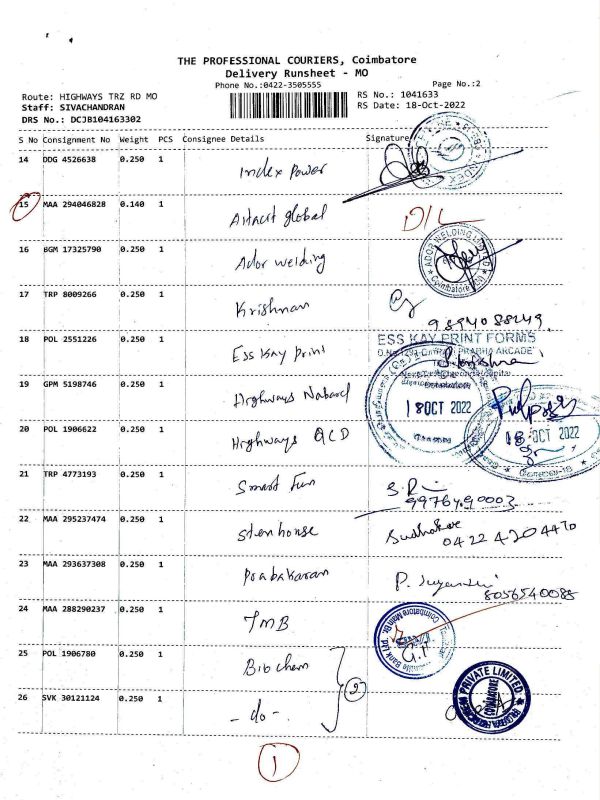 THE PROFESSIONAL COURIERS, Coimbatore
Delivery Runsheet - MO
Phone No.:0422-3505555
Page No.:2
Route: HIGHWAYS TRZ RD MO
RS No.: 1041633
Staff: SIVACHANDRAN
RS Date: 18-Oct-2022
DRS No.: DCJB104163302
S No Consignment No Weight PCS Consignee Details Signature
14 DDG 4526638 0.250 1 Index Power
15 MAA 294046828 0.140 1 global D/L
16 BGM 17325790 0.250 1 Ador welding
ADOR WELDING LIMITED
Coimbatore
17 TRP 8009266 0.250 1 Krishnan
9894088249
18 POL 2551226 0.250 1 Ess Kay Print
ESS KAY PRINT FORMS
PRABHA ARCADE
19 GPM 5198746 0.250 1 Highways Nabard
18 OCT 2022
20 POL 1906622 0.250 1 Highways QCD
18 OCT 2022
21 TRP 4773193 0.250 1 Smart Fun
9976490003
22 MAA 295237474 0.250 1 Stenhouse Sudhakar
0422 4204470
23 MAA 293637308 0.250 1 Prabakaran
8056540088
24 MAA 288290237 0.250 1 TMB
Coimbatore Main Br.
25 POL 1906780 0.250 1 Biochem
2
26 SVK 30121124 0.250 1 - do -
PRIVATE LIMITED
COIMBATORE
1